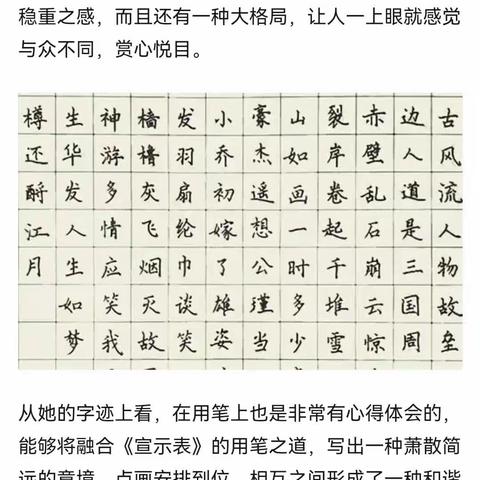 稳重之感，而且还有一种大格局，让人一上眼就感觉
与众不同，赏心悦目。
古风流人物故垒
边人道是三国周
赤壁乱石崩云惊
裂岸卷起千堆雪
山如画一时多少
豪杰遥想公瑾当
小乔初嫁了雄姿
发羽扇纶巾谈笑
樯橹灰飞烟灭故
神游多情应笑我
生华发人生如梦
樽还酹江月
从她的字迹上看，在用笔上也是非常有心得体会的，
能够将融合《宣示表》的用笔之道，写出一种萧散简
远的意境，点画安排到位，相互之间形成了一种和谐